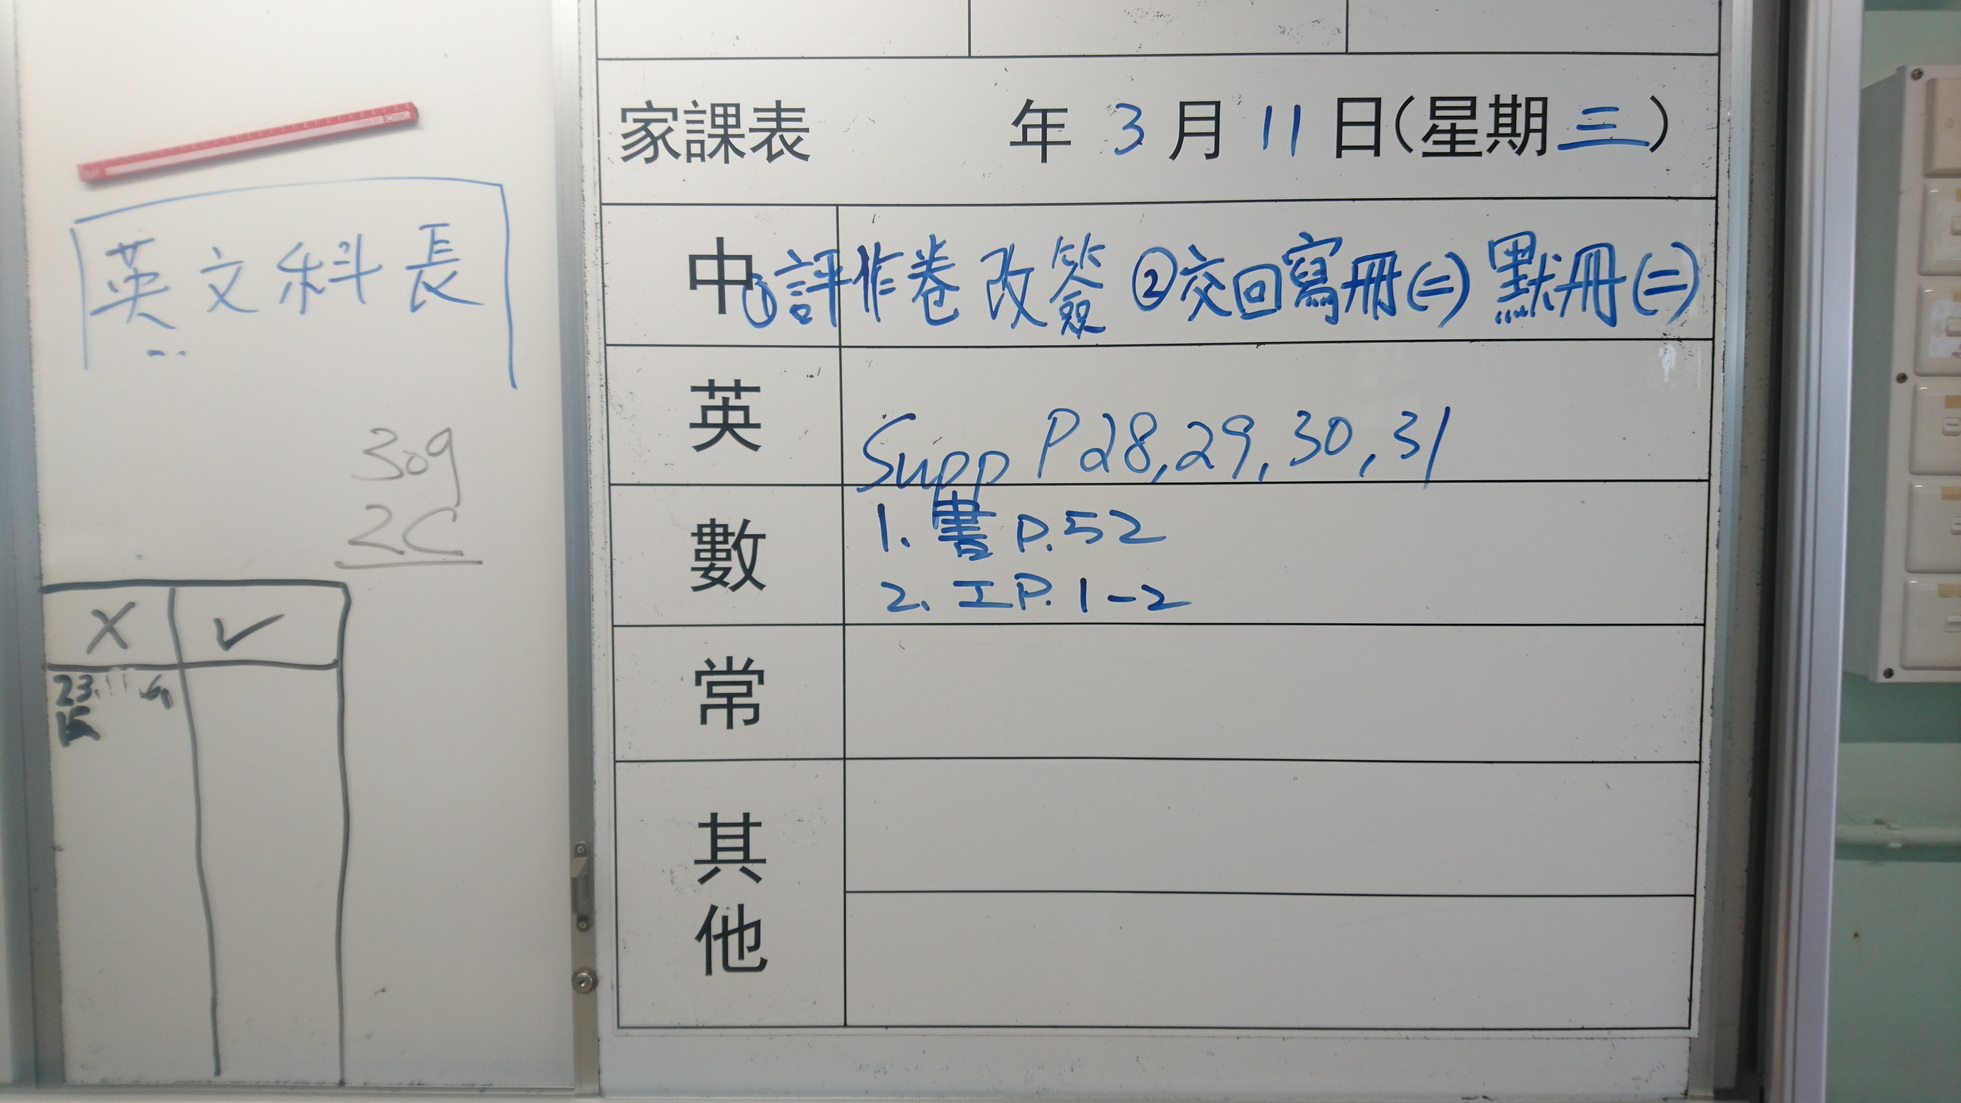 英文科長
309
2C
X ✓
23.
家課表 年 3 月 11 日(星期三)
中 ①評作卷改簽 ②交回寫冊(二) 默冊(二)
英 Supp P28,29,30,31
數 1. 書 P.52
2. 工 P. 1-2
常
其他